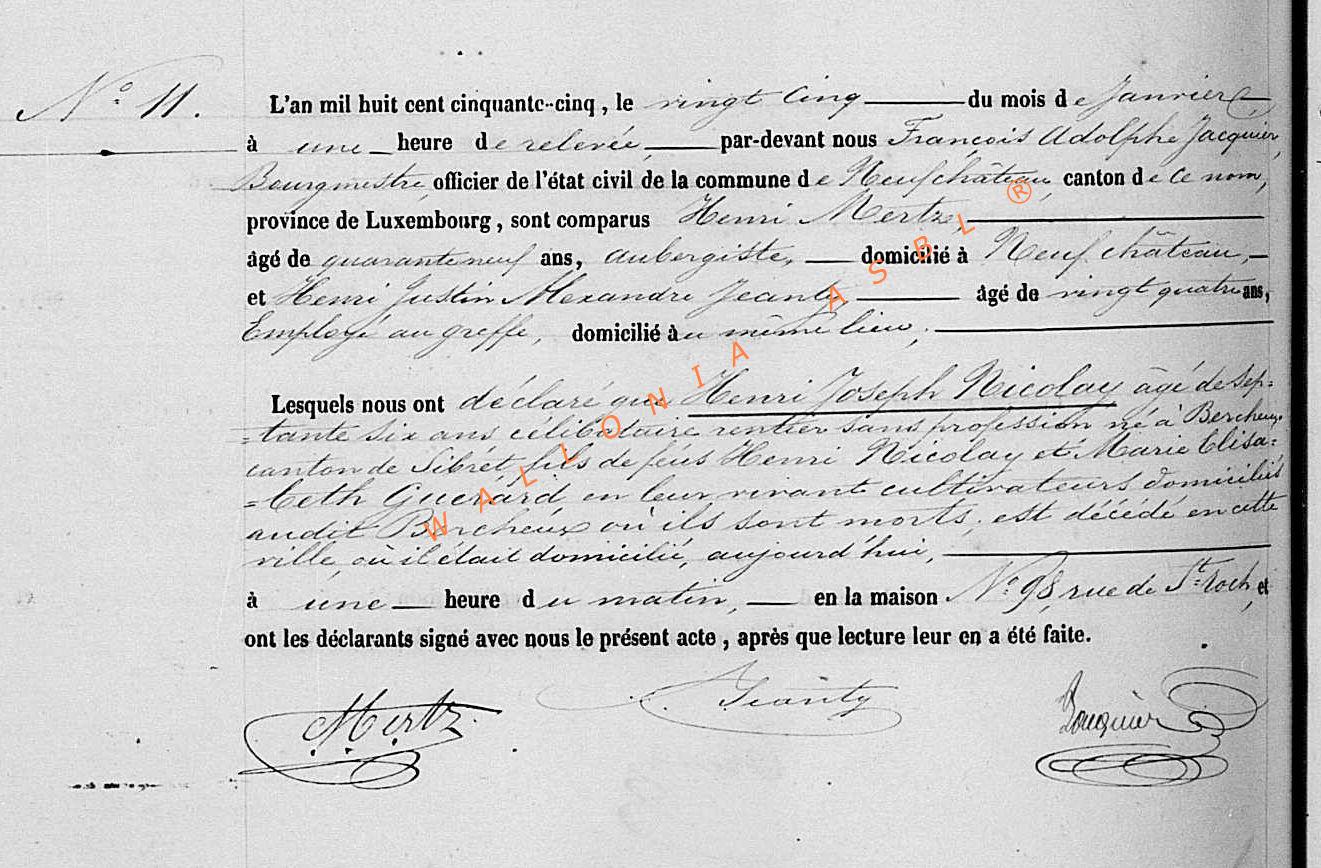 N° 11.
L'an mil huit cent cinquante-cinq, le vingt cinq du mois de Janvier,
à une heure de relevée, par-devant nous François Adolphe Jacquier,
Bourgmestre, officier de l'état civil de la commune de Neufchâteau, canton de ce nom,
province de Luxembourg, sont comparus Henri Mertz,
âgé de quarante neuf ans, aubergiste, domicilié à Neufchâteau,
et Henri Justin Alexandre Jeanty, âgé de vingt quatre ans,
Employé au greffe, domicilié au même lieu,
Lesquels nous ont déclaré que Henri Joseph Nicolay âgé de Sep=
=tante six ans célibataire rentier sans profession né à Bercheux,
canton de Sibret, fils de feus Henri Nicolay et Marie Elisa=
=beth Guerard en leur vivant cultivateurs domiciliés
audit Bercheux où ils sont morts, est décédé en cette
ville, où il était domicilié, aujourd'hui,
à une heure du matin, en la maison N° 98, rue de St Roch, et
ont les déclarants signé avec nous le présent acte, après que lecture leur en a été faite.
Mertz Jeanty Jacquier
WALLONIA ASBL ®